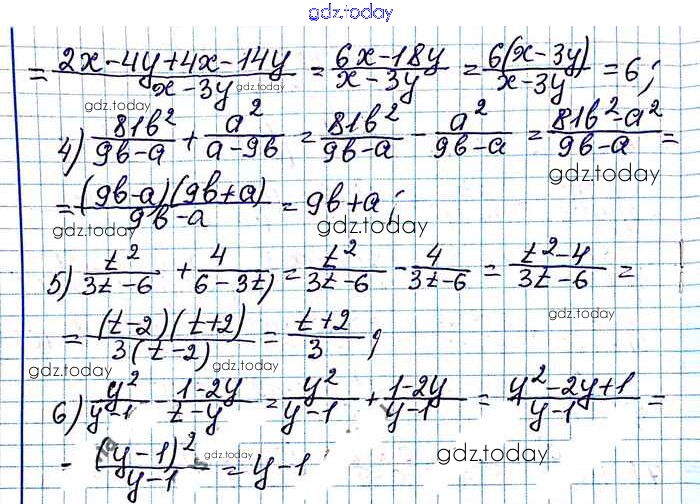 gdz.today
= (2x-4y+4x-14y)/(x-3y) = (6x-18y)/(x-3y) = (6(x-3y))/(x-3y) = 6;
gdz.today gdz.today
4) 81b²/(9b-a) + a²/(a-9b) = 81b²/(9b-a) - a²/(9b-a) = (81b²-a²)/(9b-a) =
gdz.today
= ((9b-a)(9b+a))/(9b-a) = 9b+a;
gdz.today gdz.today
5) t²/(3t-6) + 4/(6-3t) = t²/(3t-6) - 4/(3t-6) = (t²-4)/(3t-6) =
= ((t-2)(t+2))/(3(t-2)) = (t+2)/3;
gdz.today gdz.today gdz.today
6) y²/(y-1) - (1-2y)/(z-y) = y²/(y-1) + (1-2y)/(y-1) = (y²-2y+1)/(y-1) =
- (y-1)²/(y-1) = y-1
gdz.today